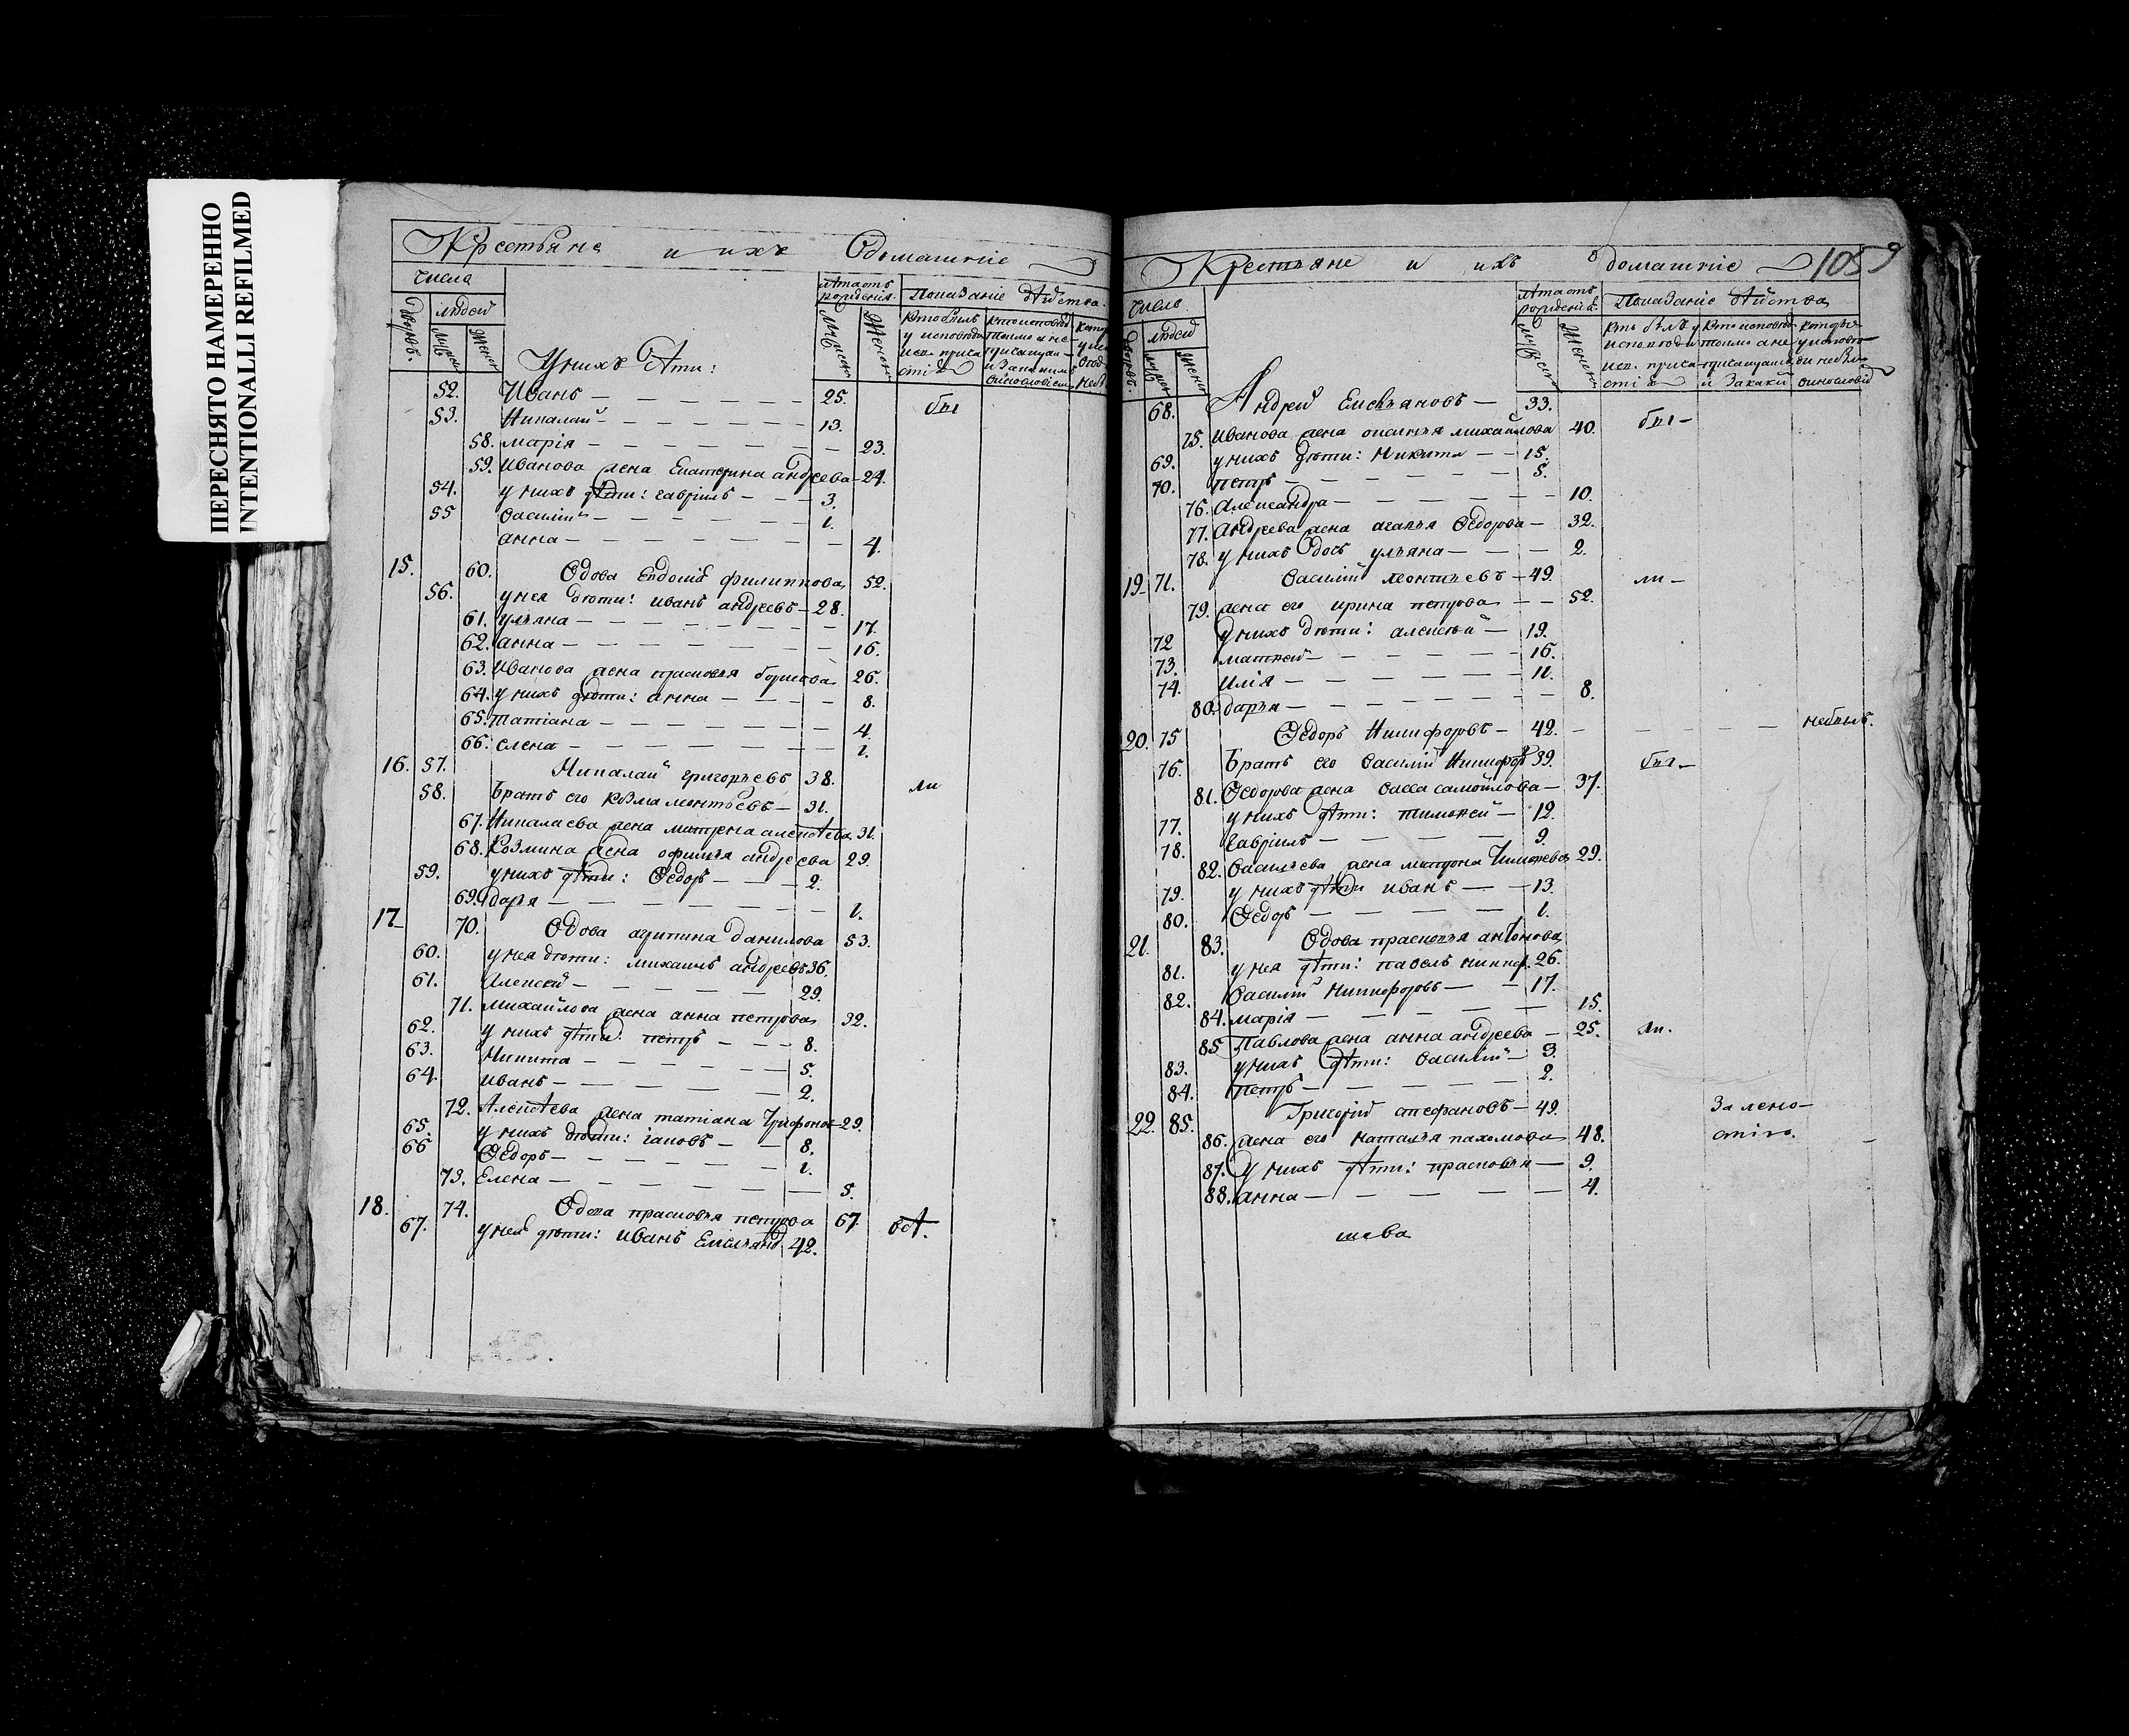 ПЕРЕСНЯТО НАМЕРЕННО
INTENTIONALLI REFILMED
Крестьяне и ихъ домашніе
числа
людей
лѣта отъ рожденія
Показаніе дѣйства
У нихъ дѣти:
52. Иванъ — 25. бы
53. Николай — 13.
58. марія — 23.
59. Иванова жена Екатерина андреева — 24.
54. у нихъ дѣти: гавріилъ — 3.
55 василій — 1.
анна — 4.
15. 60. вдова Евдокія филиппова 52.
56. у нея дѣти: иванъ андреевъ — 28.
61. ульяна — 17.
62. анна — 16.
63. Иванова жена прасковья борисова 26.
64. у нихъ дѣти: анна — 8.
65. татіана — 4.
66. елена — 1.
16. 57. Николай григорьевъ 38. ли
58. братъ его козма леонтьевъ — 31.
67. Николаева жена матрена алексѣева 31.
68. Козмина жена офимья андреева 29.
59. у нихъ дѣти: Ѳедоръ — 2.
69. дарья — 1.
17 70. вдова агрипина данилова 53.
60. у нея дѣти: михаилъ андреевъ 36.
61. Алексей — 29.
71. михайлова жена анна петрова 32.
62. у нихъ дѣти: петръ — 8.
63. Никита — 5.
64. иванъ — 2.
72. Алексѣева жена татіана Трифонов 29.
65. у нихъ дѣти: іаковъ — 8.
66 Ѳедоръ — 1.
73. Елена — 5.
18. 74. вдова прасковья петрова 67. всѣ.
67. у нея дѣти: иванъ Емельянъ 42.
Крестьяне и ихъ домашніе 1059
числъ
людей
лѣта отъ рожденія
Показаніе дѣйства
68. Андрей Емельяновъ — 33.
75. Иванова жена оксинья михайлова 40. бы —
69. у нихъ дѣти: Никита — 15.
70. петръ — 5.
76. Александра — 10.
77. Андреева жена агафья Ѳедорова — 32.
78. у нихъ дочь ульяна — 2.
19 71. василій леонтьевъ — 49. ли —
79. жена его ирина петрова — 52.
72 у нихъ дѣти: алексѣй — 19.
73. матвей — 16.
74. илія — 11.
80. дарья — 8.
20. 75 Ѳедоръ Никифоровъ — 42. — небылъ.
76. братъ его василій Никифоръ 39. бы —
81. Ѳедорова жена васса самойлова — 37.
77. у нихъ дѣти: тимофей — 12.
78. гавріилъ — 9.
82. васильева жена матрона Тимофеева 29.
79. у нихъ дѣти иванъ — 13.
80. Ѳедоръ — 1.
21. 83. вдова прасковья антонова
81. у нея дѣти: павелъ никиф. 26.
82. василій Никифоровъ — 17.
84. марія — 15.
85 Павлова жена анна андреева — 25. ли.
83. у нихъ дѣти: василій — 3.
84. петръ — 2.
22. 85. Григорій стефановъ — 49. За лено-
86. жена его наталья пахомова 48. стію.
87. у нихъ дѣти: прасковья — 9.
88. анна — 4.